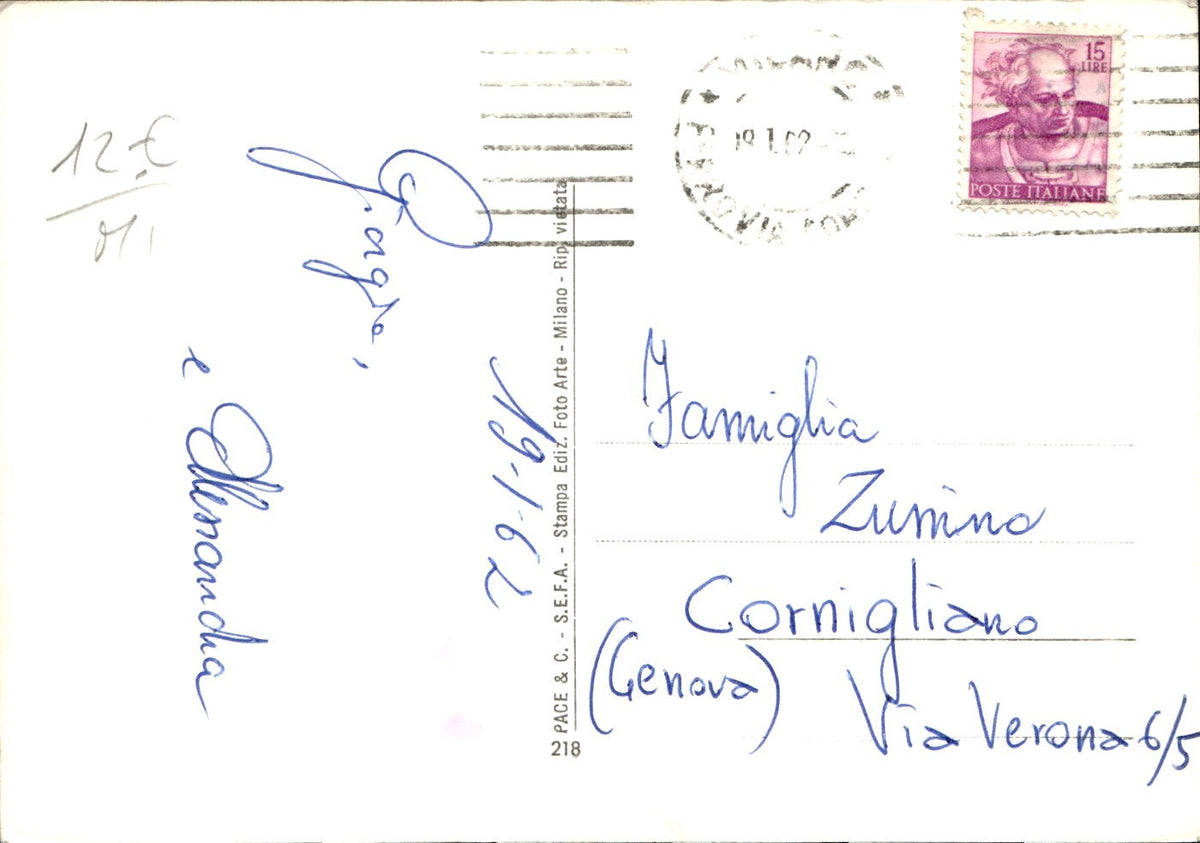 12 €
Giorgio,
e Alessandra
19-1-62
PACE & C. - S.E.F.A. - Stampa Ediz. Foto Arte - Milano - Rip. vietata
218
15
LIRE
POSTE ITALIANE
Famiglia
Zunino
Cornigliano
(Genova)
Via Verona 6/5